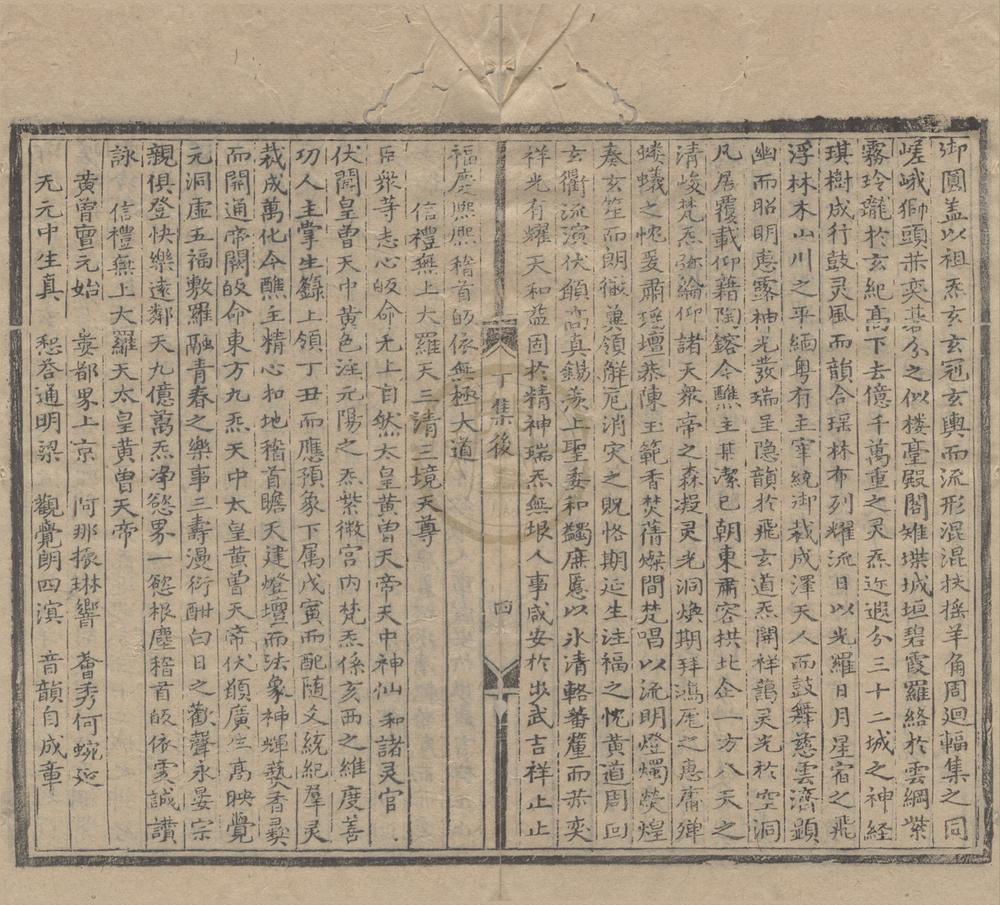 御圓盖以祖炁玄玄冠玄輿而流形混混扶摇羊角周迴輻集之同
嵯峨獅頭恭奕碁分之似楼臺殿閣雉堞城垣碧霞羅絡於雲綱紫
霧玲瓏於玄紀髙下去億千萬重之灵炁近遐分三十二城之神経
琪樹成行鼓灵風而韻合瑶林布列耀流日以光羅日月星宿之飛
浮林木山川之平緬粤有主宰統御裁成澤天人而鼓舞慈雲濟顕
幽而昭明惠露神光發瑞呈隐韻於飛玄道炁開祥蕅灵光於空洞
凡居覆載仰藉陶鎔今醮主某潔已朝東肅容拱北企一方八天之
清峻梵炁弥綸仰諸天衆帝之森凝灵光洞煥期拜鴻庬之惠庸殫
螻蟻之忱爰肅瑶壇恭陳玉範香焚蒨燦間梵唱以流明燈燭熒煌
奏玄笙而朗徹兾領解厄消灾之贶恪期延生注福之忱黄道周回
玄衢流演伏願高真錫羡上聖委和蠲庶慝以氷清輅蕃釐而恭奕
祥光有耀天和益固扵精神瑞炁無垠人事咸安扵出武吉祥止止
丁集後
四
福慶熈熈稽首皈依無極大道
信禮無上大羅天三清三境天尊
臣衆等志心皈命无上自然太皇黄曾天帝天中神仙和諸灵官
伏聞皇曾天中黄色注元陽之炁紫微宫内梵炁係亥西之維度善
功人主掌生籙上領丁丑而應預象下属戊寅而配随文統紀羣灵
裁成萬化今醮主精心扣地稽首瞻天建燈壇而法象神輝爇香彛
而開通帝闕皈命東方九炁天中太皇黄曽天帝伏願廣生髙映覺
元洞虚五福敷羅融青春之樂事三壽漫衍酣白日之歡聲永晏宗
親俱登快樂遠鄰天九億萬炁净慾界一慾根塵稽首皈依雲誠讚
詠
信禮無上大羅天太皇黄曽天帝
黄曽亶元始　婁都界上京　阿那揬琳響　薈秀何蜿延
无元中生真　恕荅通明梁　觀覺朗四溟　音韻自成章